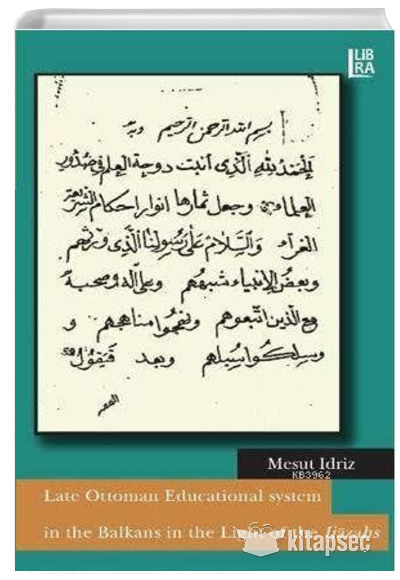 LiB
RA
بسم الله الرحمن الرحيم وبه
الحمد لله الذى أنبت دوحة العلم فى صدور
العلماء وجعل ثمارها انوار احكام الشريعة
الغراء والسلام على رسولنا الذى ورثهم
وبعض الانبياء شبههم وعلى اله وصحبه
مع الذين اتبعوهم ونهجوا مناهجهم و
وسلكوا سبيلهم وبعد فيقول
الفقير
Mesut Idriz
KB3962
Late Ottoman Educational system
in the Balkans in the Light of the Ijāzahs
kitapseç